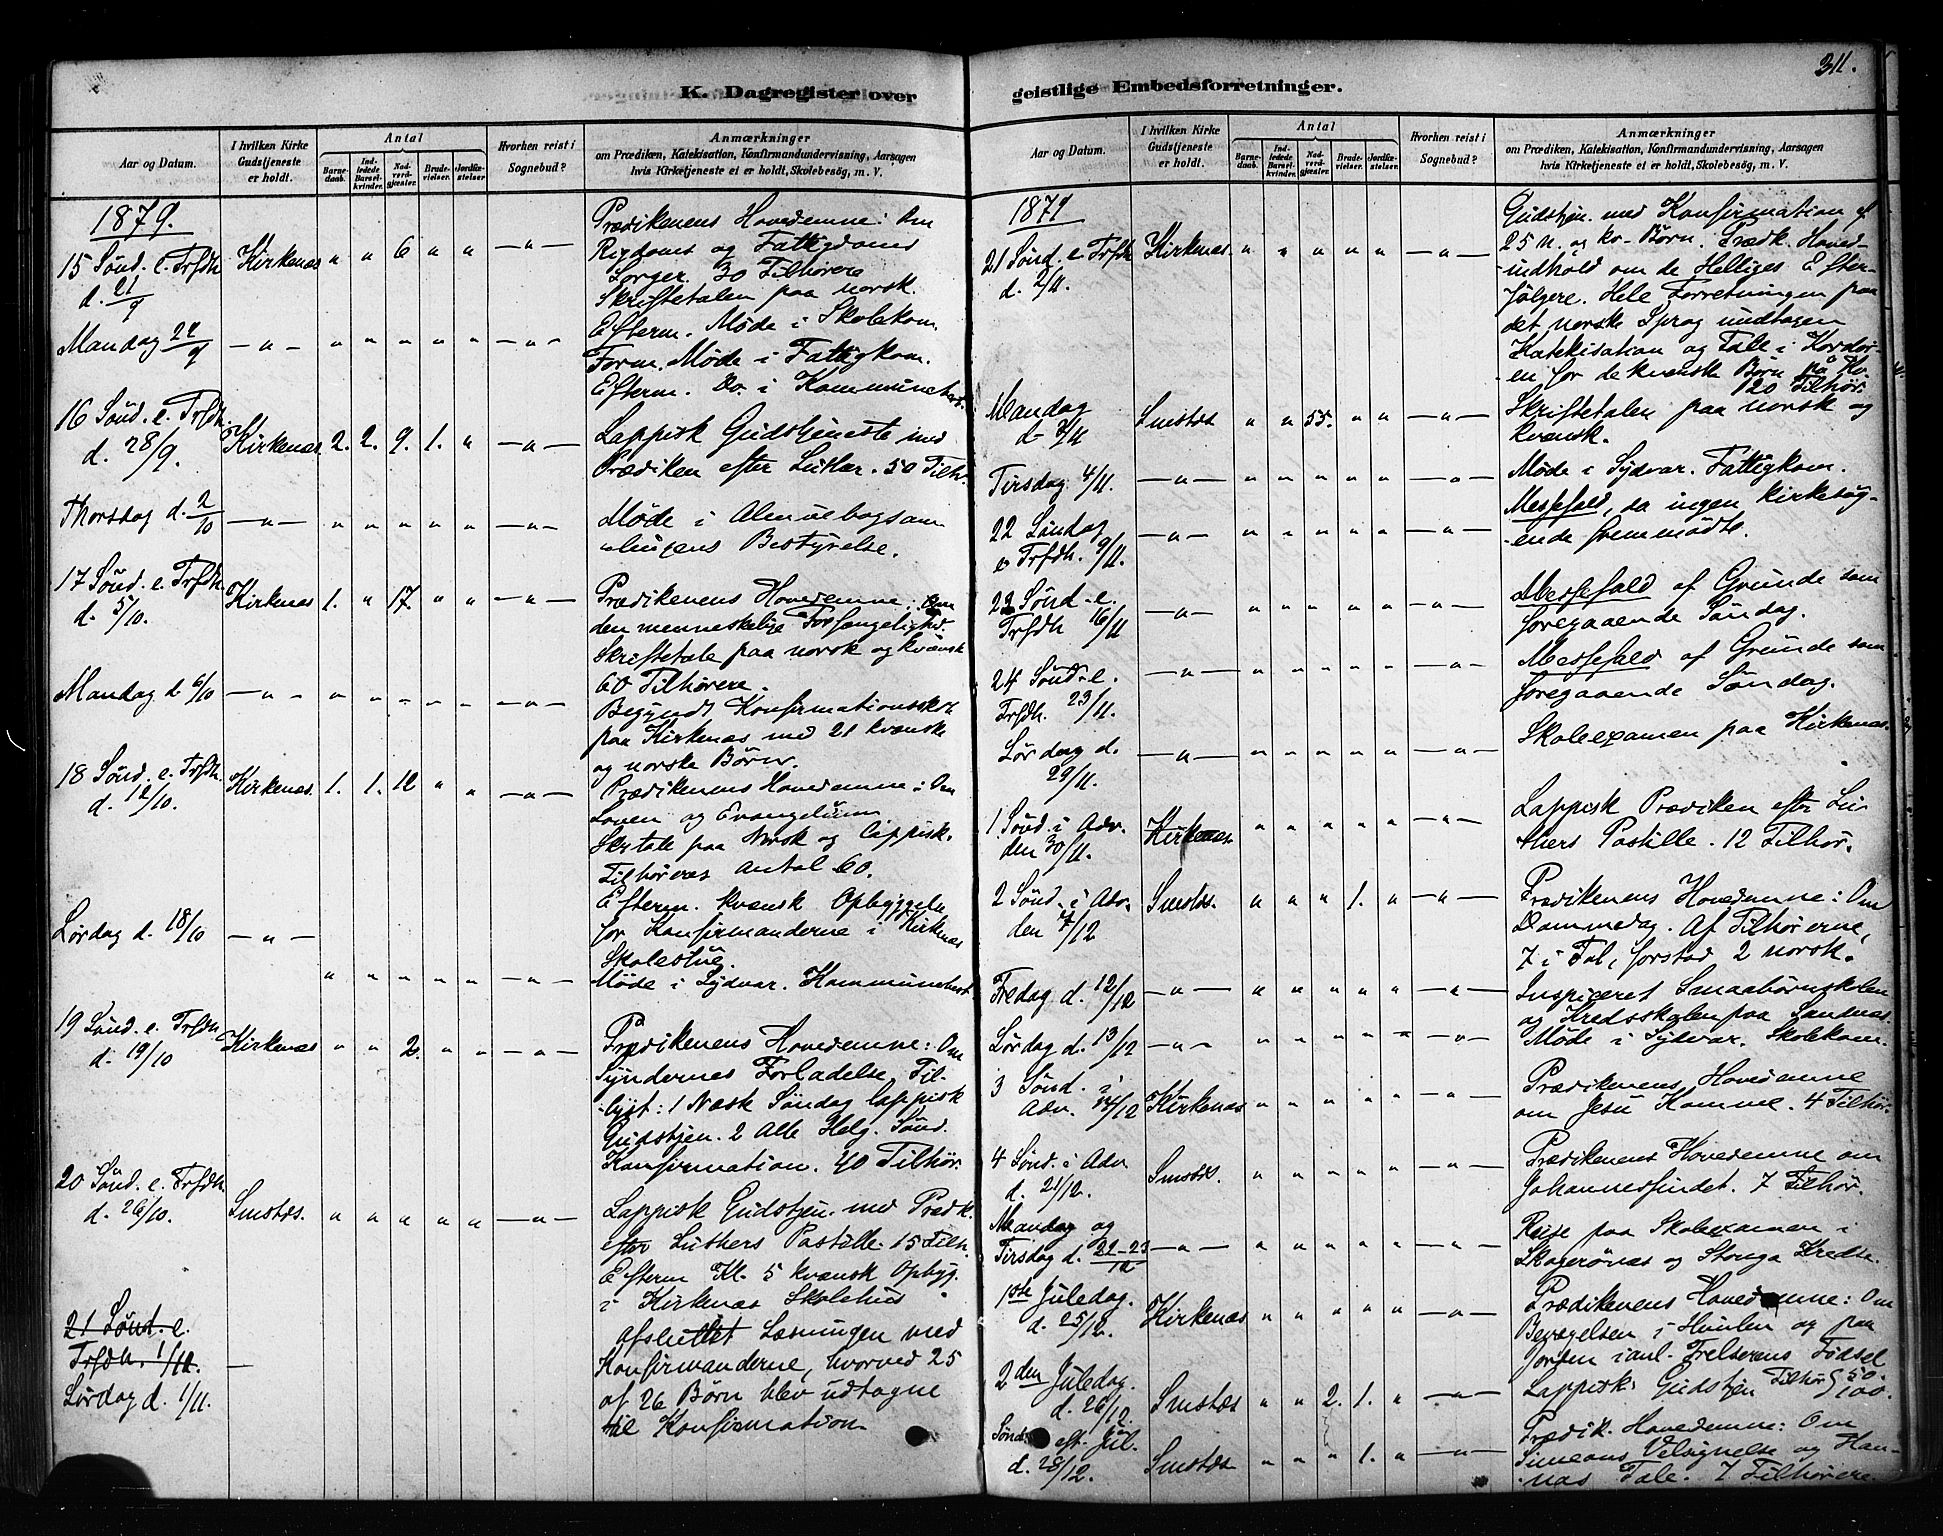 K. Dagregister over
Aar og Datum.
I hvilken Kirke Gudstjeneste er holdt.
Antal
Barnedaab.
Indledede Barselkvinder.
Nadverdgjæster.
Brudevielser.
Jordfæstelser.
Hvorhen reist i Sognebud?
Anmærkninger
om Prædiken, Katekisation, Konfirmandundervisning, Aarsagen
hvis Kirketjeneste ei er holdt, Skolebesøg, m. V.
1879.
15 Sønd. e. Trfdh. d. 21/9 Kirkenæs " " 6 " " —"—
Prædikenens Hovedemne: Om
Rigdoms og Fattigdoms
Sorger. 30 Tilhørere
Skriftetalen paa norsk.
Efterm. Møde i Skolekom.
Mandag 22/9 —"— " " " " " —"—
Form. Møde i Fattigkom.
Efterm. Do. i Kommunebest.
16 Sønd. e. Trfdh. d. 28/9. Kirkenæs 2. 2. 9. 1. " —"—
Lappisk Gudstjeneste med
Prædiken efter Luther. 50 Tilh.
Thorsdag d. 2/10 —"— " " " " " —"—
Møde i Almuebogsam
lingens Bestyrelse.
17 Sønd. e. Trfdh. d. 5/10. Kirkenæs 1. " 17. " " —"—
Prædikenens Hovedemne: Om
den menneskelige Forfængelighed.
Skriftetale paa norsk og kvænsk
60 Tilhørere.
Mandag d. 6/10 —"— " " " " " —"—
Begyndt Konfirmationssk.
paa Kirkenæs med 21 kvænske
og norske Børn.
18 Sønd. e. Trfdh. d. 12/10. Kirkenæs. 1. 1. 12 " " —"—
Prædikenens Hovedemne: Om
Loven og Evangelium
Skrtale paa Norsk og Lappisk.
Tilhøreres antal 60.
Efterm. kvænsk Opbyggelse
for Konfirmanderne i Kirkenæs
Skolestue.
Lørdag d. 18/10 —"— " " " " " —"—
Møde i Sydvar. Kommunebest.
19 Sønd. e. Trfdh. d. 19/10 Kirkenæs " " 2. " " —"—
Prædikenens Hovedemne: Om
Syndernes Forladelse. Til-
lyst: 1 Næsk Søndag lappisk
Gudstjen. 2 Alle Helg. Sønd.
Konfirmation. 40 Tilhør.
20 Sønd. e. Trfdh. d. 26/10. Smstds. " " " " " —"—
Lappisk Gudstjen. med Prædk.
efter Luthers Postille. 15 Tilh.
Efterm Kl. 5 kvænsk Opbyg.
i Kirkenæs Skolehus
21 Sønd. e. Trfdh. 1/12. —
Lørdag d. 1/11.
Afsluttet Læsningen med
Konfirmanderne, hvorved 25
af 26 Børn blev udtagne
til Konfirmation
geistlige Embedsforretninger.
311.
Aar og Datum.
I hvilken Kirke Gudstjeneste er holdt.
Antal
Barnedaab.
Indledede Barselkvinder.
Nadverdgjæster.
Brudevielser.
Jordfæstelser.
Hvorhen reist i Sognebud?
Anmærkninger
om Prædiken, Katekisation, Konfirmandundervisning, Aarsagen
hvis Kirketjeneste ei er holdt, Skolebesøg, m. V.
1879
21 Sønd. e. Trfdh. d. 2/11. Kirkenæs. " " " " " —"—
Gudstjen. med Konfirmation af
25 n. og kv. Børn. Prædk. Hoved-
indhold om de Helliges Efter-
følgere. Hele Forretningen paa
det norske Sprog undtagen
Katekisation og Tale i Kordør-
en for de kvænske Børn på Kv.
120 Tilhør.
Mandag d. 3/11 Smstds " " 55. " " —"—
Skriftetalen paa norsk og
kvænsk.
Tirsdag 4/11. —"— " " " " " —"—
Møde i Sydvar. Fattigkom.
22 Søndag e Trfdh. 9/11. —"— " " " " " —"—
Messefald, da ingen Kirkesøg-
ende fremmødte.
23 Sønd. e. Trfdh 16/11 —"— " " " " " —"—
Messefald af Grunde som
foregaaende Søndag.
24 Sønd. e. Trfdh. 23/11. —"— " " " " " —"—
Messefald af Grunde som
foregaaende Søndag.
Lørdag d. 29/11. —"— " " " " " —"—
Skoleexamen paa Kirkenæs.
1 Sønd. i Adv. den 30/11. Kirkenæs " " " " " —"—
Lappisk Prædiken efter Lu-
thers Postille. 12 Tilhør.
2 Sønd. i Adv. den 7/12 Smstds. " " " 1. " —"—
Prædikenens Hovedemne: Om
Dommedag. Af Tilhørerne,
7 i Tal, forstod 2 norsk.
Fredag d. 12/12 —"— " " " " " —"—
Inspiceret Smaabørnskolen
og Kredsskolen paa Sandnæs.
Lørdag d. 13/12 —"— " " " " " —"—
Møde i Sydvar. Skolekom.
3 Sønd. i Adv. 14/12 Kirkenæs " " " " " —"—
Prædikenens Hovedemne
om Jesu Komme. 4 Tilhør.
4 Sønd. i Adv d. 21/12. Smstds. " " " " " —"—
Prædikenens Hovedemne om
Johannesfindet. 7 Tilhør.
Mandag og Tirsdag d. 22-23/12 —"— " " " " " —"—
Reise paa Skolexamen i
Skogerønæs og Stonga Kredse.
1ste Juledag. d. 25/12. Kirkenæs " " " " " —"—
Prædikenens Hovedemne: Om
Bevægelsen i Himlen og paa
Jorden i anl. Frelserens Fødsel
Tilhør 50.
2den Juledag. d. 26/12. Smstds " " 2. 1. " —"—
Lappisk Gudstjen 100.
Sønd. eft. Jul. d. 28/12. Smstds " " " 1. " —"—
Prædik. Hovedemne: Om
Simeons Velsignelse og Han-
nas Tale. 7 Tilhørere.